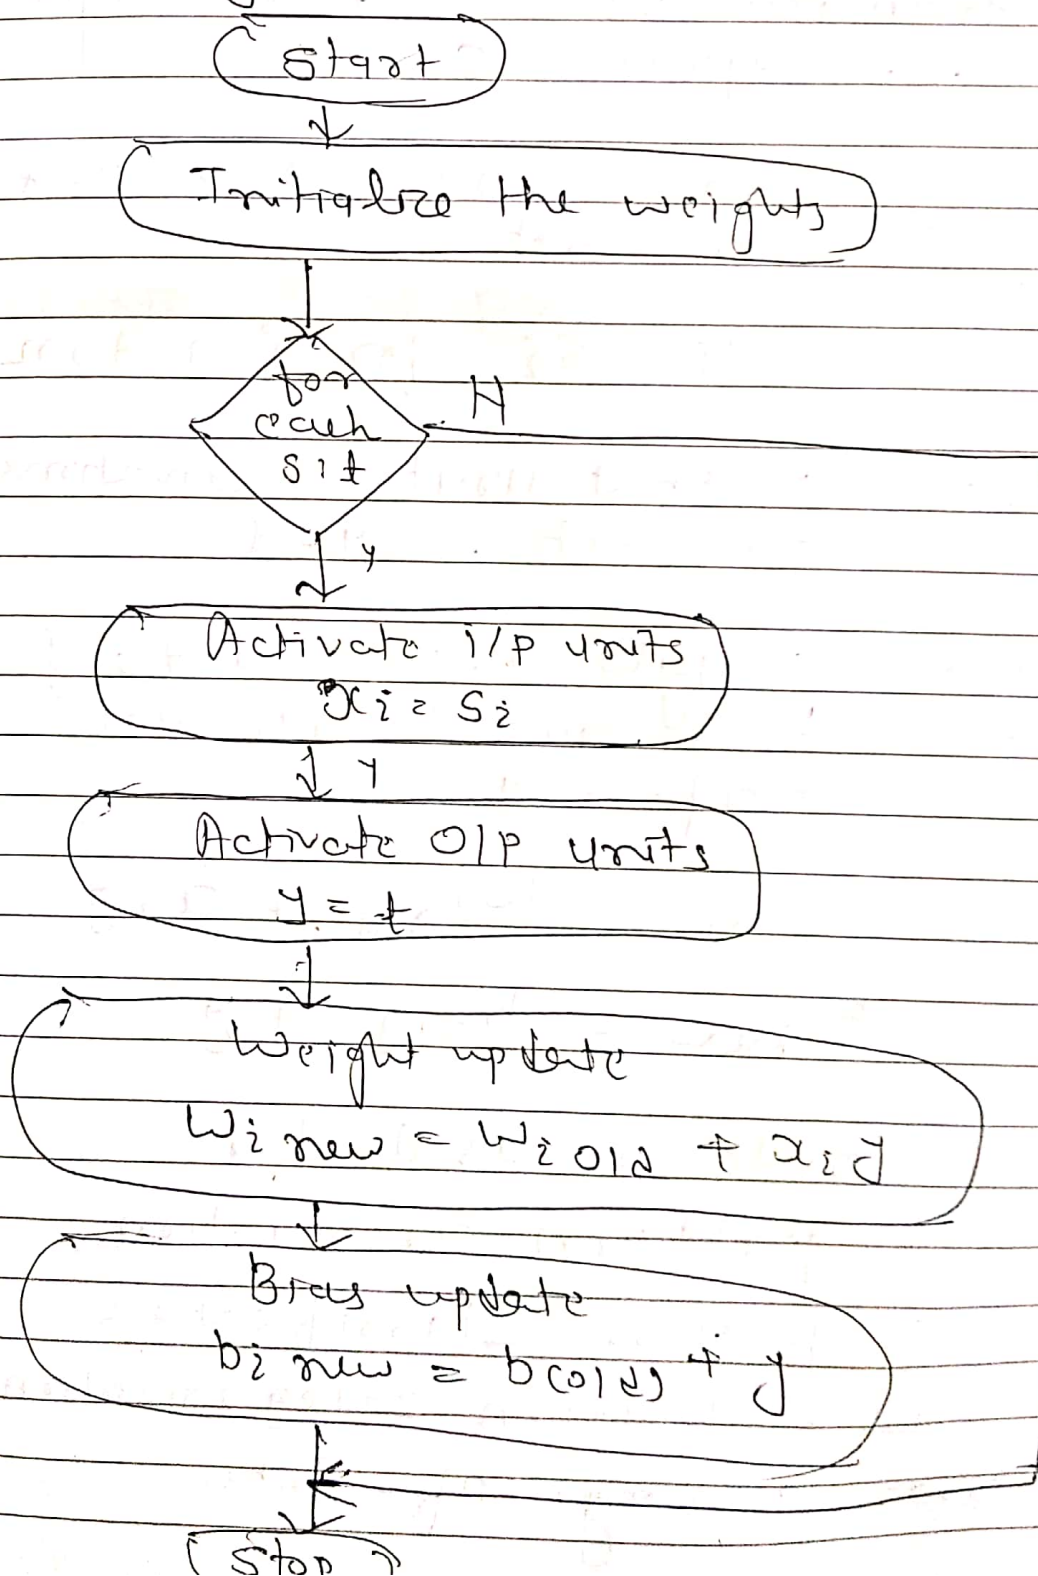 Start
Initialize the weights
for
each
s:t
N
y
Activate i/p units
xi = si
Y
Activate O/P units
y = t
Weight update
Wi new = Wi old + xi y
Bias update
bi new = b(old) + y
Stop